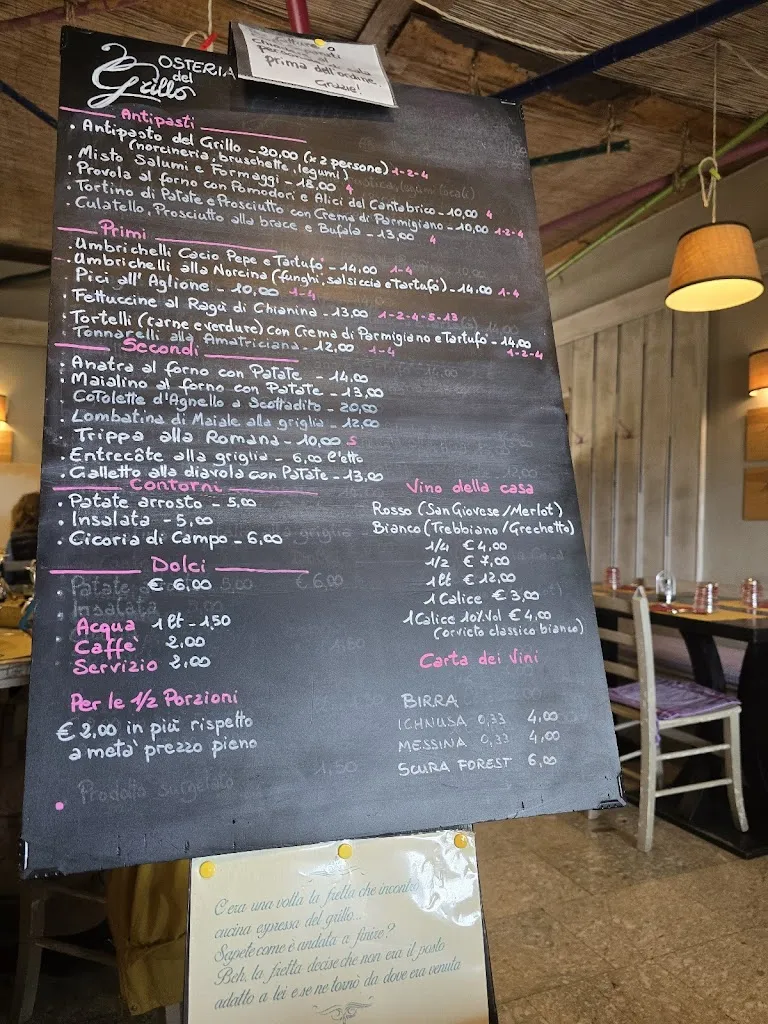 OSTERIA
del
Grillo
prima dell'ordine.
Grazie!
Antipasti
• Antipasto del Grillo - 20,00 (x2 persone) 1-2-4
(norcineria, bruschette, legumi)
• Misto Salumi e Formaggi - 18,00 4
• Provola al forno con Pomodori e Alici del Cantabrico - 10,00 4
• Tortino di Patate e Prosciutto con Crema di Parmigiano - 10,00 1-2-4
• Culatello, Prosciutto alla brace e Bufala - 13,00 4
Primi
• Umbrichelli Cacio Pepe e Tartufo - 14,00 1-4
• Umbrichelli alla Norcina (funghi, salsiccia e Tartufo) - 14,00 1-4
• Pici all'Aglione - 10,00 1-4
• Fettuccine al Ragù di Chianina - 13,00 1-2-4-5-13
• Tortelli (carne e verdure) con Crema di Parmigiano e Tartufo - 14,00 1-2-4
• Tonnarelli alla Amatriciana - 12,00 1-4
Secondi
• Anatra al forno con Patate - 14,00
• Maialino al forno con Patate - 13,00
• Cotolette d'Agnello a Scottadito - 20,00
• Lombatina di Maiale alla griglia - 12,00
• Trippa alla Romana - 10,00 5
• Entrecôte alla griglia - 6,00 l'etto
• Galletto alla diavola con Patate - 13,00
Contorni
• Patate arrosto - 5,00
• Insalata - 5,00
• Cicoria di Campo - 6,00
Dolci
€ 6,00
Acqua 1 lt - 1,50
Caffè 2,00
Servizio 2,00
Per le 1/2 Porzioni
€ 2,00 in più rispetto
a metà prezzo pieno
• Prodotto surgelato
Vino della casa
Rosso (SanGiovese/Merlot)
Bianco (Trebbiano/Grechetto)
1/4 € 4,00
1/2 € 7,00
1 lt € 12,00
1 Calice € 3,00
1 Calice 10%vol € 4,00
(orvieto classico bianco)
Carta dei Vini
BIRRA
ICHNUSA 0,33 4,00
MESSINA 0,33 4,00
SCURA FOREST 6,00
C'era una volta la fretta che incontrò
cucina espressa del grillo...
Sapete come è andata a finire?
Beh, la fretta decise che non era il posto
adatto a lei e se ne tornò da dove era venuta